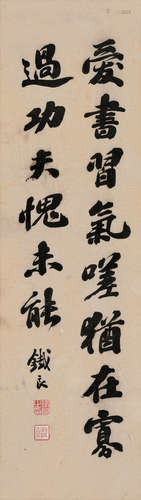 愛書習氣嗟猶在寡
過功夫愧未能
鐵良